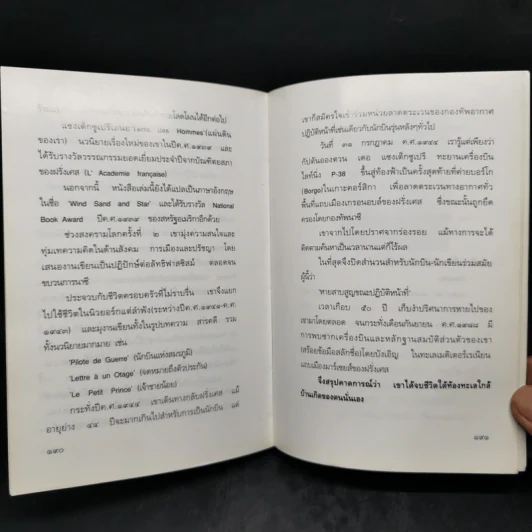 โลดโผนได้อีกต่อไป
แซงเต็กซูเปริเผยผลงาน Terre des Hommes (แผ่นดิน
ของเรา) นวนิยายเรื่องใหม่ของเขาในปีค.ศ.๑๙๓๙ และ
ได้รับรางวัลวรรณกรรมยอดเยี่ยมประจำปีจากบัณฑิตยสภา
ของฝรั่งเศส (L' Academie française)
นอกจากนี้ หนังสือเล่มนี้ยังได้แปลเป็นภาษาอังกฤษ
ในชื่อ 'Wind Sand and Star' และได้รับรางวัล National
Book Award ปีค.ศ.๑๙๓๙ ของสหรัฐอเมริกาอีกด้วย
ช่วงสงครามโลกครั้งที่ ๒ เขามุ่งความสนใจและ
ทุ่มเทความคิดในด้านสังคม การเมืองและปรัชญา โดย
เสนองานเขียนเป็นปฏิปักษ์ต่อลัทธิฟาสซิสม์ ตลอดจน
ขบวนการนาซี
ประจวบกับชีวิตครอบครัวที่ไม่ราบรื่น เขาจึงแยก
ไปใช้ชีวิตในนิวยอร์กแต่ลำพัง(ระหว่างปีค.ศ.๑๙๔๑-ค.ศ.
๑๙๔๓) และมุ่งานเขียนทั้งในรูปบทความ สารคดี รวม
ทั้งนวนิยายมากมาย เช่น
'Pilote de Guerre' (นักบินแห่งสมรภูมิ)
'Lettre à un Otage' (จดหมายถึงตัวประกัน)
'Le Petit Prince' (เจ้าชายน้อย)
กระทั่งปีค.ศ.๑๙๔๔ เขาเดินทางกลับฝรั่งเศส แม้
อายุย่าง ๔๔ ปีจะมากเกินไปสำหรับการเป็นนักบิน แต่
๑๙๐
เขาก็สมัครใจเข้าร่วมหน่วยลาดตระเวนของกองทัพอากาศ
ปฏิบัติหน้าที่เช่นเดียวกับนักบินรุ่นหลังๆทั่วไป
วันที่ ๓๑ กรกฎาคม ค.ศ.๑๙๔๔ เรารู้แต่เพียงว่า
กัปตันอองตวน เดอ แซงเต็กซูเปริ ทะยานเครื่องบิน
ไลท์นิ่ง P-38 ขึ้นสู่ท้องฟ้าเป็นครั้งสุดท้ายที่ค่ายบอร์โก
(Borgo)ในเกาะคอร์สิกา เพื่อลาดตระเวนทางอากาศทั่ว
พื้นที่แถบเมืองเกรอนอบล์ของฝรั่งเศส ซึ่งขณะนั้นถูกยึด
ครองโดยกองทัพนาซี
เขาจากไปโดยปราศจากร่องรอย แม้ทางการจะได้
ติดตามค้นหาเป็นเวลานานแต่ก็ไร้ผล
ในที่สุดจึงปิดสำนวนสำหรับนักบิน-นักเขียนร่วมสมัย
ผู้นี้ว่า
'หายสาบสูญขณะปฏิบัติหน้าที่'
เวลาเกือบ ๕๐ ปี เก็บงำปริศนาการหายไปของ
เขามาโดยตลอด จนกระทั่งเดือนกันยายน ค.ศ.๑๙๙๘ มี
การพบซากเครื่องบินและหลักฐานสมบัติส่วนตัวของเขา
(สร้อยข้อมือสลักชื่อ)โดยบังเอิญ ในทะเลเมดิเตอร์เรเนียน
แถบเมืองมาร์เซยส์ของฝรั่งเศส
จึงสรุปคาดการณ์ว่า เขาได้จบชีวิตใต้ท้องทะเลใกล้
บ้านเกิดของตนนั่นเอง
๑๙๑